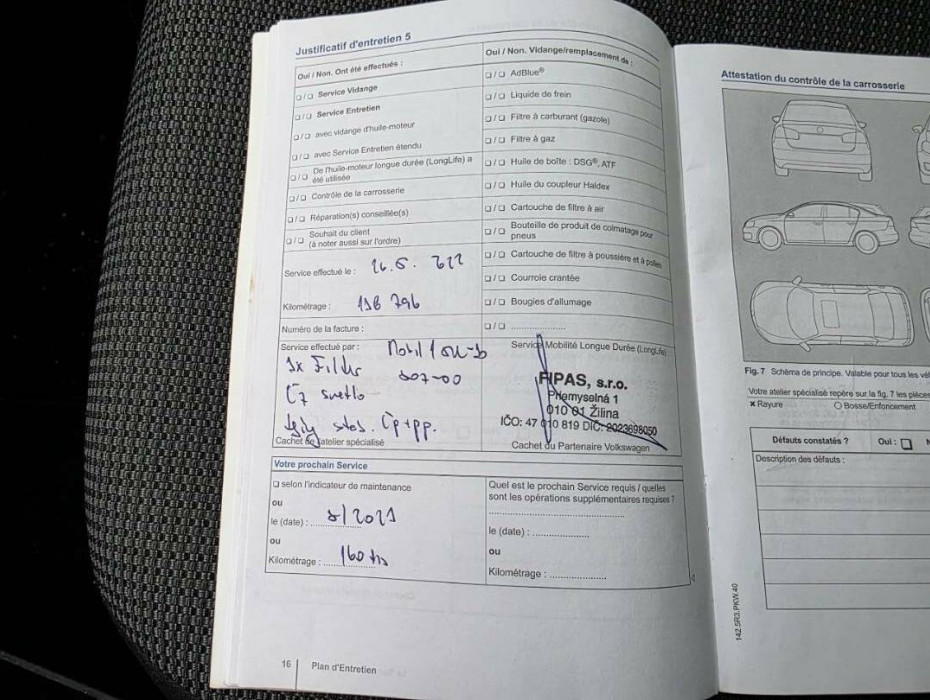 Justificatif d'entretien 5
Oui / Non. Ont été effectués :
❑/❑ Service Vidange
❑/❑ Service Entretien
❑/❑ avec vidange d'huile-moteur
❑/❑ avec Service Entretien étendu
❑/❑ De l'huile-moteur longue durée (LongLife) a
été utilisée
❑/❑ Contrôle de la carrosserie
❑/❑ Réparation(s) conseillée(s)
❑/❑ Souhait du client
(à noter aussi sur l'ordre)
Service effectué le :
Kilométrage : 138 796
Numéro de la facture :
Service effectué par :
3x Filter
507-00
Cachet de l'atelier spécialisé
Oui / Non. Vidange/remplacement de :
❑/❑ AdBlue®
❑/❑ Liquide de frein
❑/❑ Filtre à carburant (gazole)
❑/❑ Filtre à gaz
❑/❑ Huile de boîte : DSG®, ATF
❑/❑ Huile du coupleur Haldex
❑/❑ Cartouche de filtre à air
❑/❑ Bouteille de produit de colmatage pour
pneus
❑/❑ Cartouche de filtre à poussière et à pollen
❑/❑ Courroie crantée
❑/❑ Bougies d'allumage
❑/❑ ....................
Service Mobilité Longue Durée (LongLife)
FIPAS, s.r.o.
Priemyselná 1
010 01 Žilina
IČO: 47 910 819 DIČ: 2023698050
Cachet du Partenaire Volkswagen
Votre prochain Service
❑ selon l'indicateur de maintenance
ou
le (date) : 5/2023
ou
Kilométrage : 160 tis
Quel est le prochain Service requis / quelles
sont les opérations supplémentaires requises ?
le (date) : ....................
ou
Kilométrage : ....................
16 Plan d'Entretien
Attestation du contrôle de la carrosserie
Fig. 7 Schéma de principe. Valable pour tous les
Votre atelier spécialisé repère sur la fig. 7 les pièces
× Rayure ○ Bosse/Enfoncement
Défauts constatés ? Oui : ❑
Description des défauts :
142.5R3.PKW.40